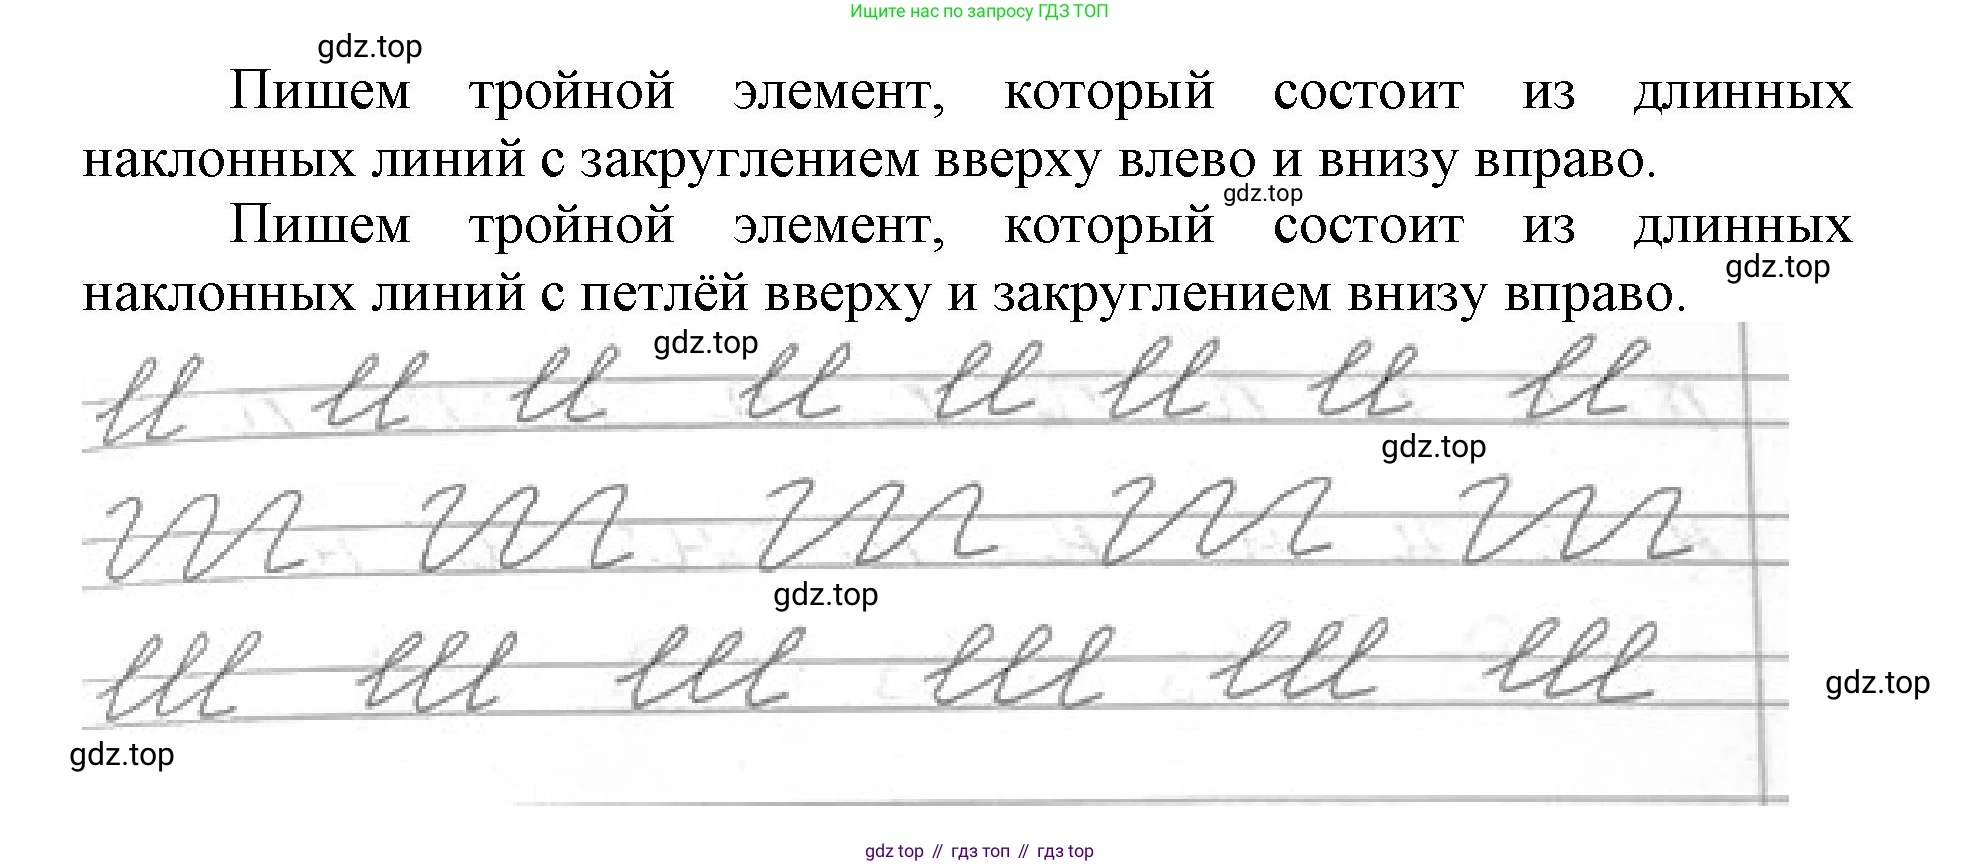 Ищите нас по запросу ГДЗ ТОП
gdz.top
Пишем тройной элемент, который состоит из длинных
наклонных линий с закруглением вверху влево и внизу вправо.
gdz.top
Пишем тройной элемент, который состоит из длинных
gdz.top
наклонных линий с петлёй вверху и закруглением внизу вправо.
gdz.top
gdz.top
gdz.top
gdz.top
gdz.top
gdz top // гдз топ // гдз top